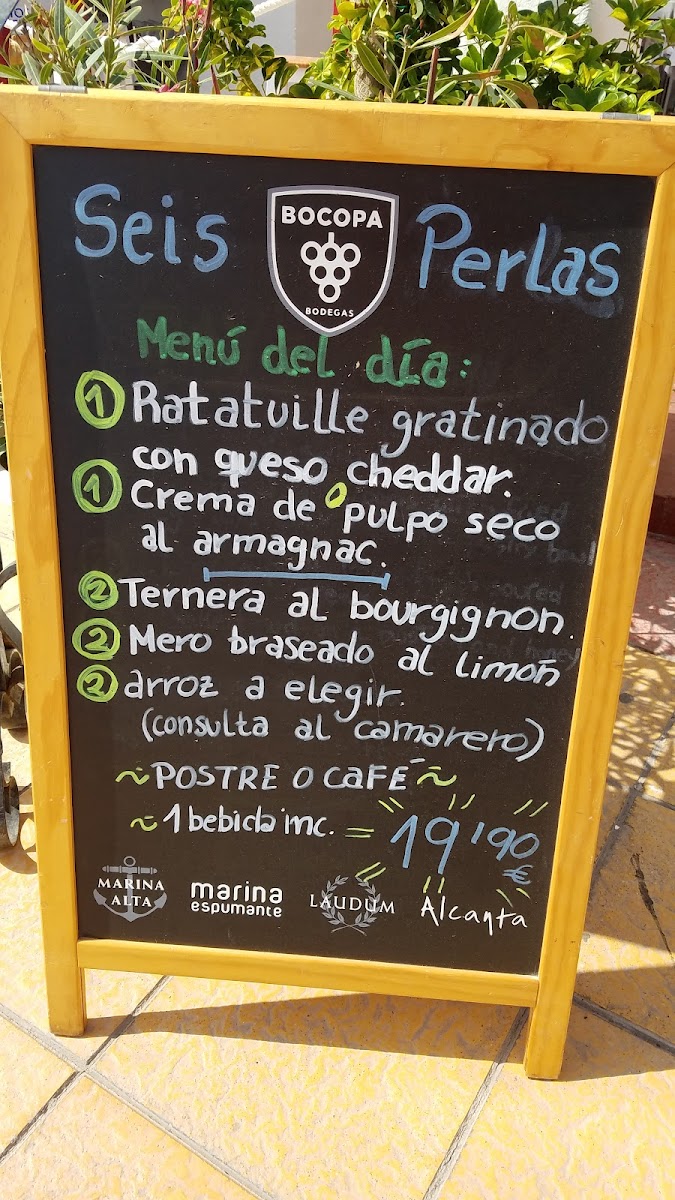 Seis Perlas
BOCOPA
BODEGAS
Menú del día:
1 Ratatuille gratinado
con queso cheddar.
1 Crema de pulpo seco
al armagnac.
2 Ternera al bourgignon.
2 Mero braseado al limón
2 arroz a elegir.
(consulta al camarero)
~POSTRE O CAFÉ~
~1 bebida inc. = 19'90 €
MARINA ALTA
marina espumante
LAUDUM
Alcanta